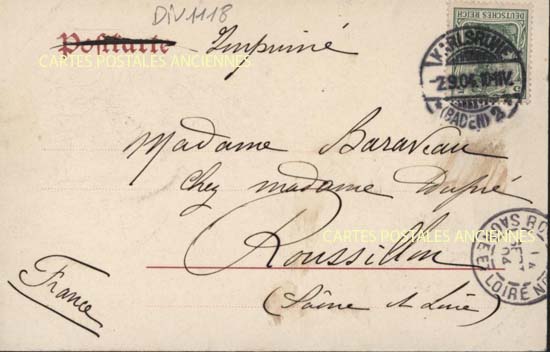 DIV1118
Postkarte Imprimé
CARTES POSTALES ANCIENNES
DEUTSCHES REICH
KARLSRUHE
-2.9.04.10-11V.
*(BADEN) 2*
Madame Baraveau
chez madame Dupré
CARTES POSTALES ANCIENNES
Roussillon
(Saône et Loire)
France
SAÔNE ET LOIRE